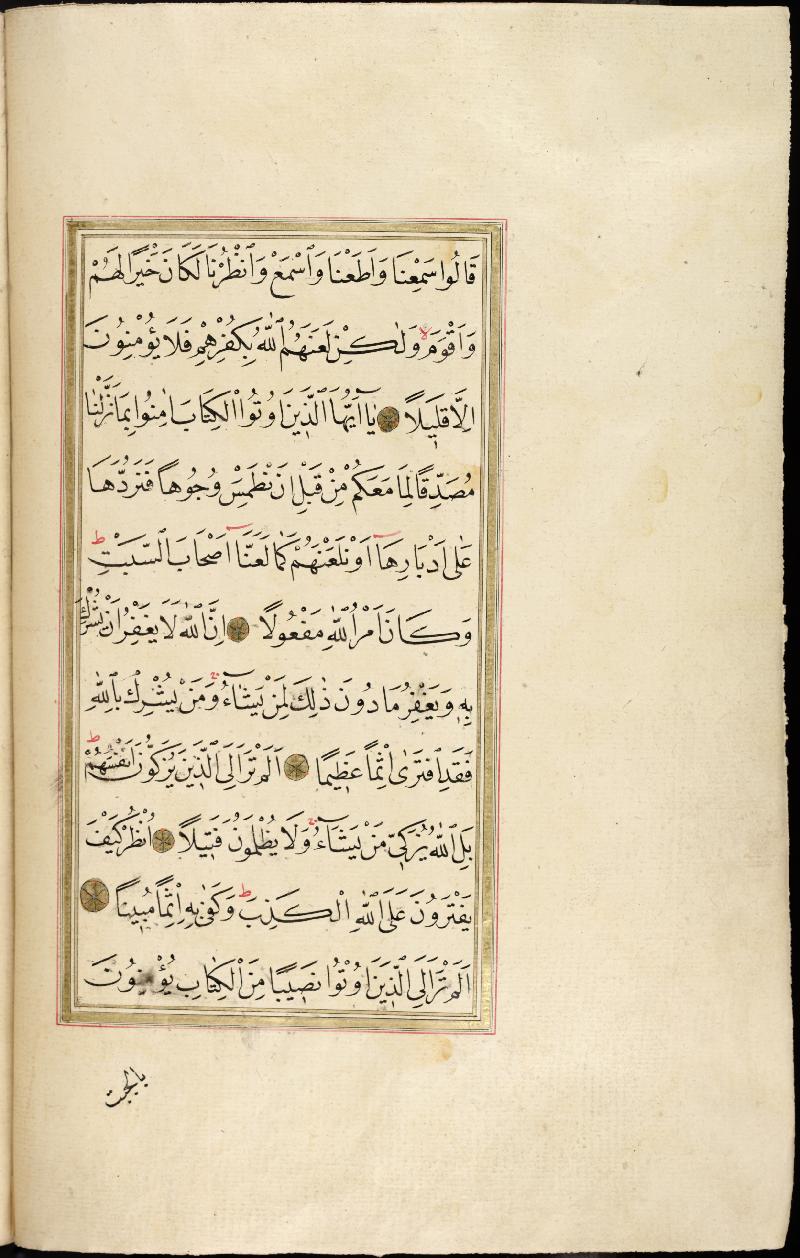 قَالُوا سَمِعْنَا وَاَطَعْنَا وَاسْمَعْ وَانْظُرْنَا لَكَانَ خَيْرًا لَهُمْ
وَاَقْوَمَ ۙ وَلٰكِنْ لَعَنَهُمُ اللّٰهُ بِكُفْرِهِمْ فَلَا يُؤْمِنُونَ
اِلَّا قَلِيلًا يَٓا اَيُّهَا الَّذِينَ اُوتُوا الْكِتَابَ اٰمِنُوا بِمَا نَزَّلْنَا
مُصَدِّقًا لِمَا مَعَكُمْ مِنْ قَبْلِ اَنْ نَطْمِسَ وُجُوهًا فَنَرُدَّهَا
عَلٰٓى اَدْبَارِهَٓا اَوْ نَلْعَنَهُمْ كَمَا لَعَنَّٓا اَصْحَابَ السَّبْتِ ط
وَكَانَ اَمْرُ اللّٰهِ مَفْعُولًا اِنَّ اللّٰهَ لَا يَغْفِرُ اَنْ يُشْرَكَ
بِهِ وَيَغْفِرُ مَا دُونَ ذٰلِكَ لِمَنْ يَشَٓاءُ ۚ وَمَنْ يُشْرِكْ بِاللّٰهِ
فَقَدِ افْتَرٰٓى اِثْمًا عَظِيمًا اَلَمْ تَرَ اِلَى الَّذِينَ يُزَكُّونَ اَنْفُسَهُمْ ط
بَلِ اللّٰهُ يُزَكِّي مَنْ يَشَٓاءُ ۚ وَلَا يُظْلَمُونَ فَتِيلًا اُنْظُرْ كَيْفَ
يَفْتَرُونَ عَلَى اللّٰهِ الْكَذِبَ ط وَكَفٰى بِهِ اِثْمًا مُبِينًا
اَلَمْ تَرَ اِلَى الَّذِينَ اُوتُوا نَصِيبًا مِنَ الْكِتَابِ يُؤْمِنُونَ
بالجبت